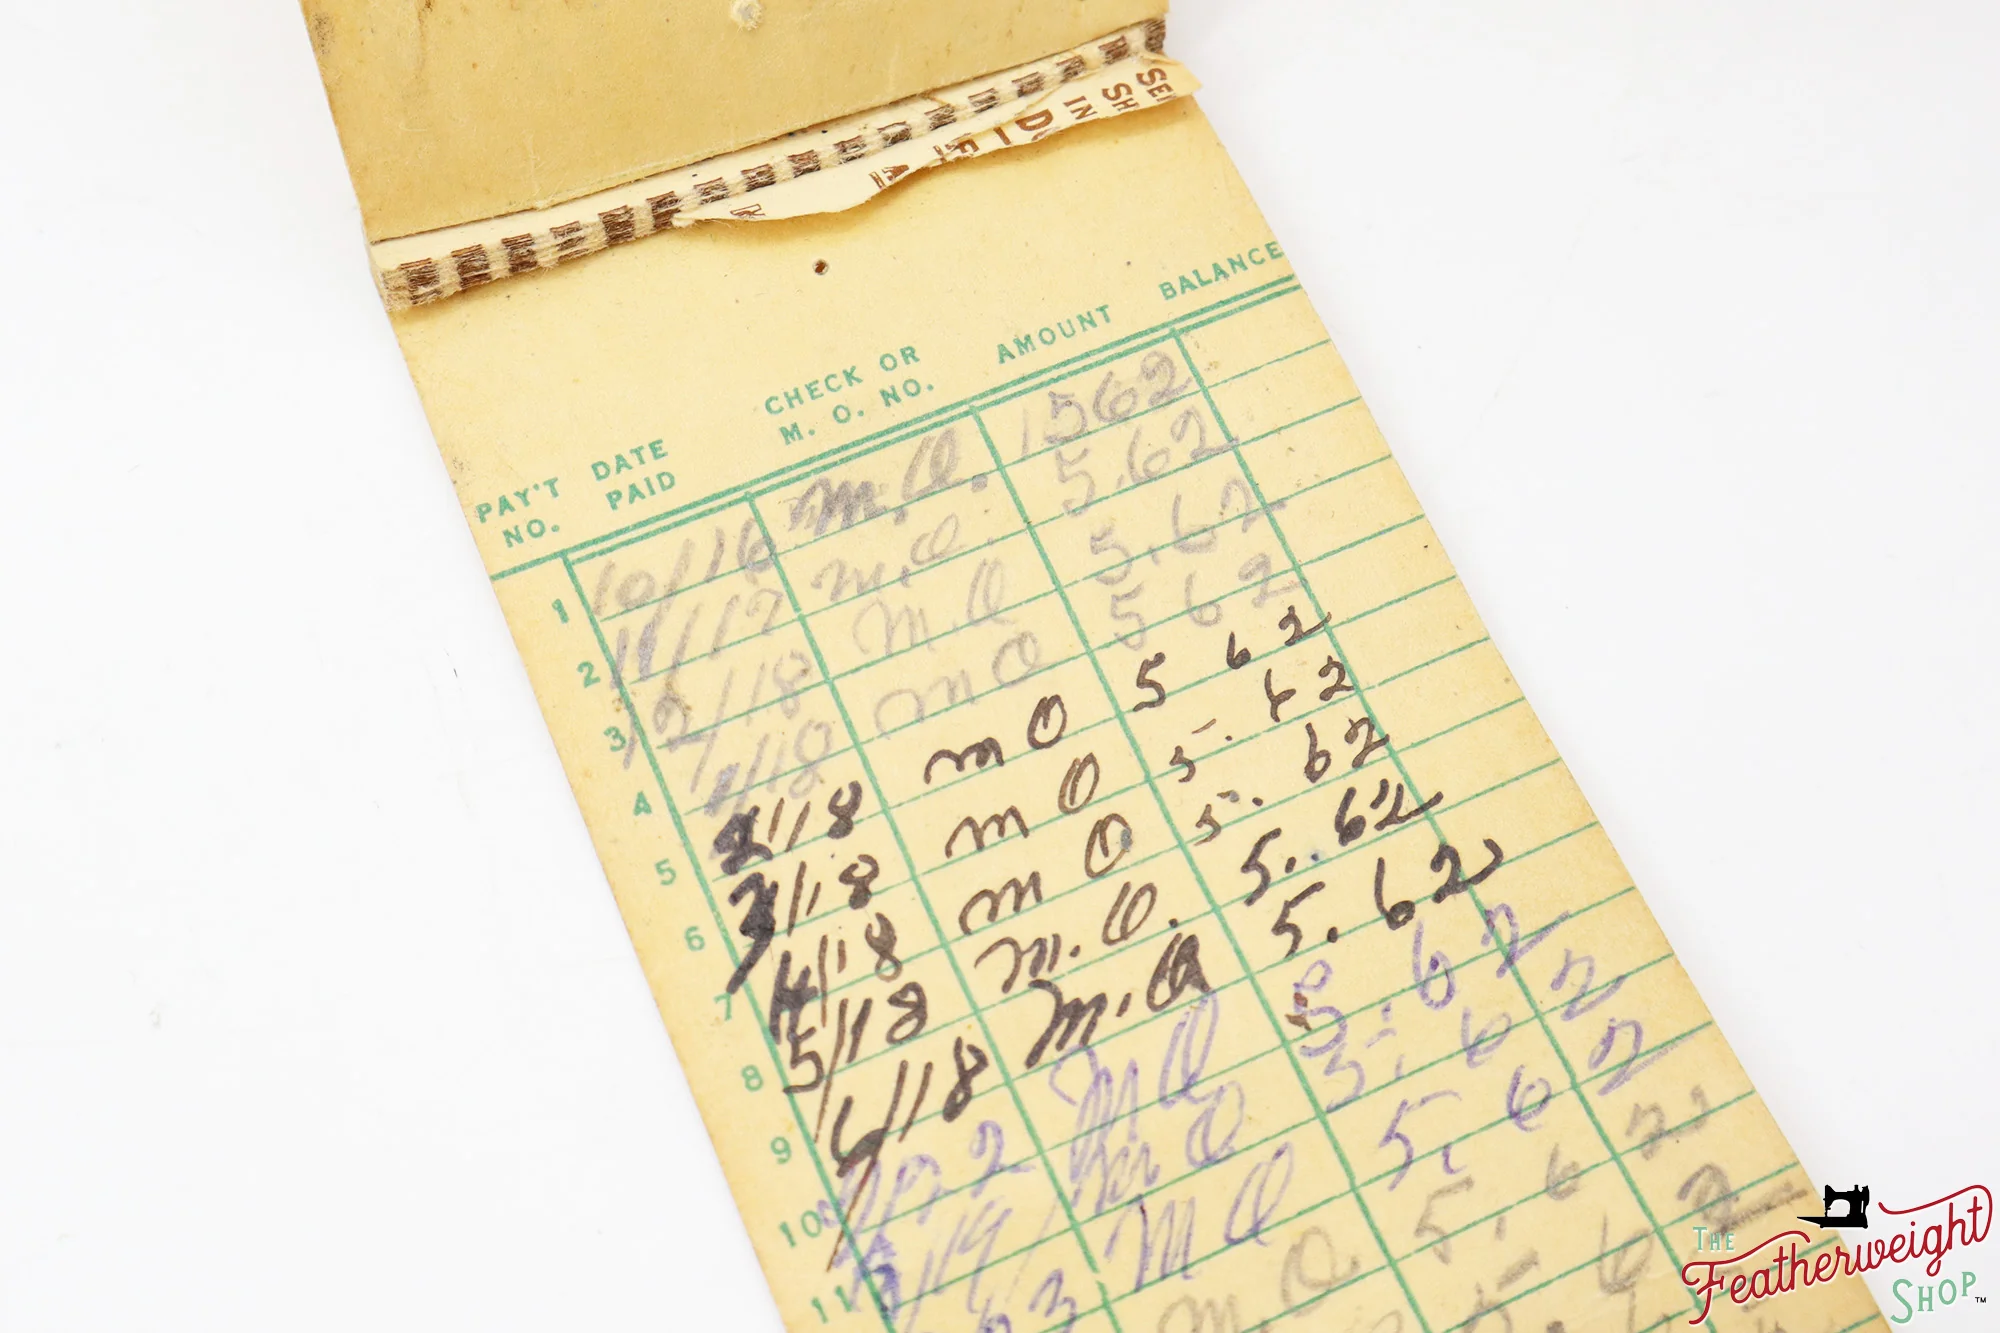 SE
SH
IN
D
PAY'T NO. DATE PAID CHECK OR M. O. NO. AMOUNT BALANCE
1 10/16 M.O. 1562
2 11/17 m.O. 5.62
3 12/18 M.O 5.62
4 1/18 m O 5 62
5 2/18 m O 5 62
6 3/18 m O 5. 62
7 4/18 m O 5. 62
8 5/18 m. O. 5.. 62
9 6/18 M.O 5. 62
10 M O 5. 62
11 M O 5. 6 2
M O 5. 6 2
m O. 5. 6 2
THE
Featherweight
SHOP™